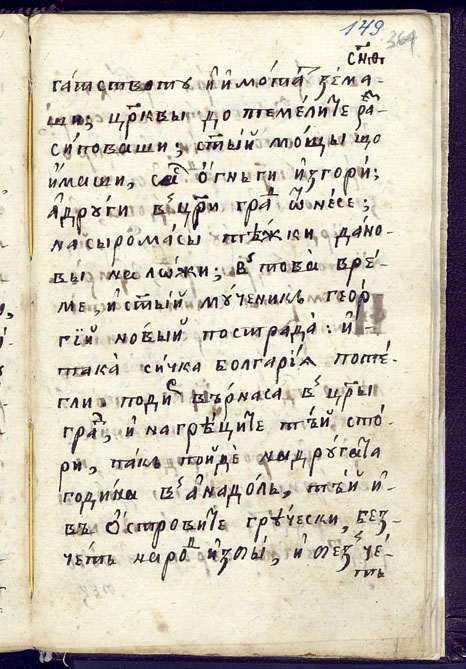 149
364
гатствотъ и имота̀ зема-
ши; црⷦ҇вы до темеліте раⷥ҇-
сиповаши; ст҃ый мощы що
имаши, саⷭ҇ огньги изгори;
а други въ цр҃и граⷣ ѿнесе;
на сыромасы тѣжки дано-
вы наложи; въ това вре-
ме, и ст҃ый мученикъ геор-
гїй новый пострада: и-
така сичка болгарїѧ поте-
гли. подиⷬ҇ върнаса въ цр҃ы
граⷣ, и на грѣците тъй сто-
ри, пакъ пойде на другата
година въ анадолъ, тъй и-
въ островите грѣчески, без-
четъ нароⷣ изби, и безъ че-
тъ